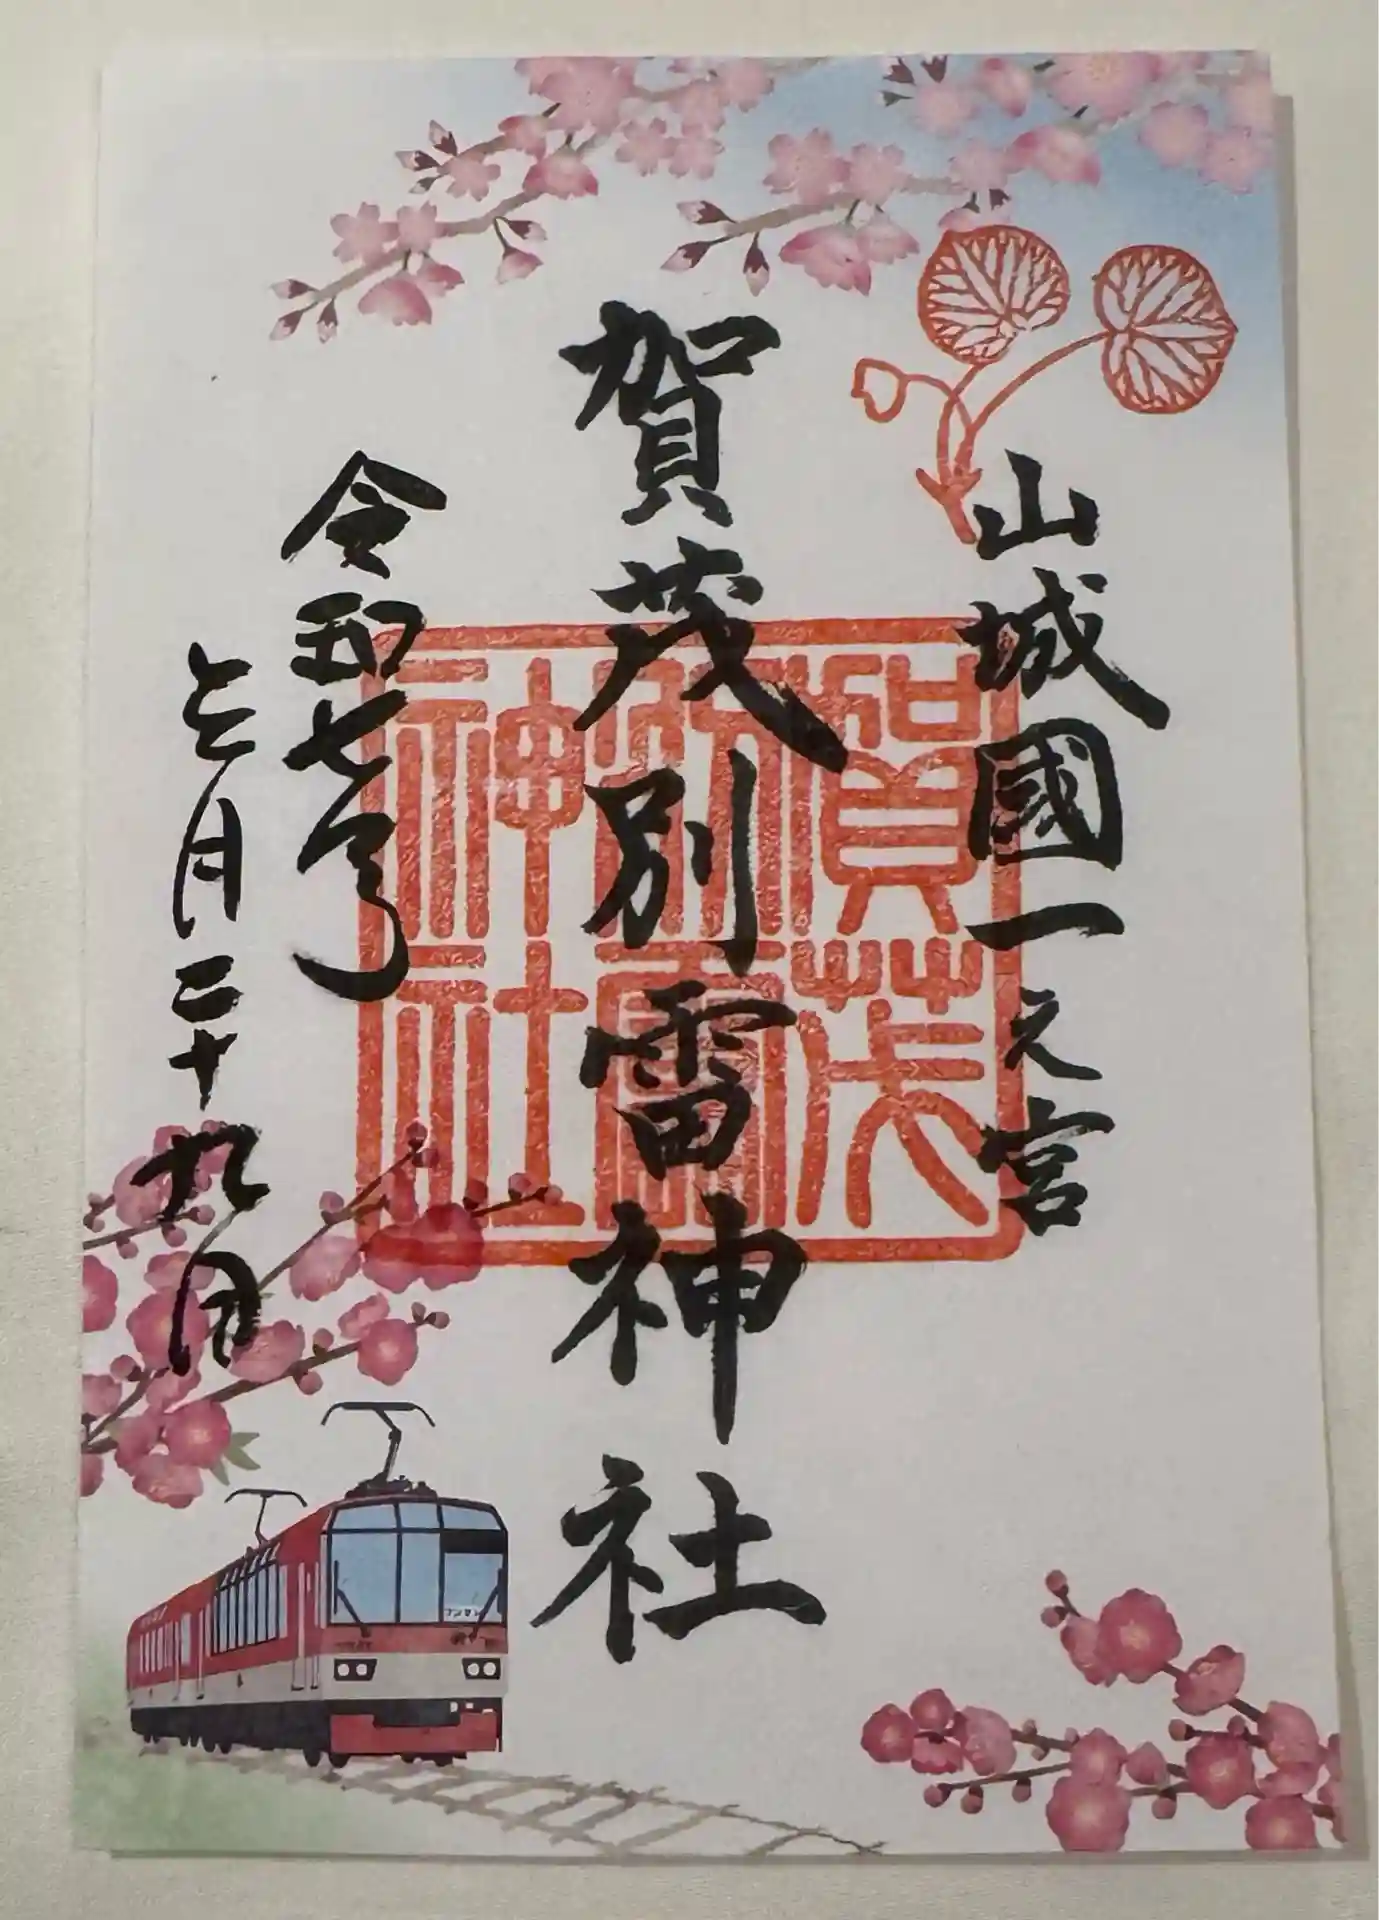 山城國一之宮
賀茂別雷神社
賀茂
別雷
神社
令和七年
七月二十九日
ワンマン